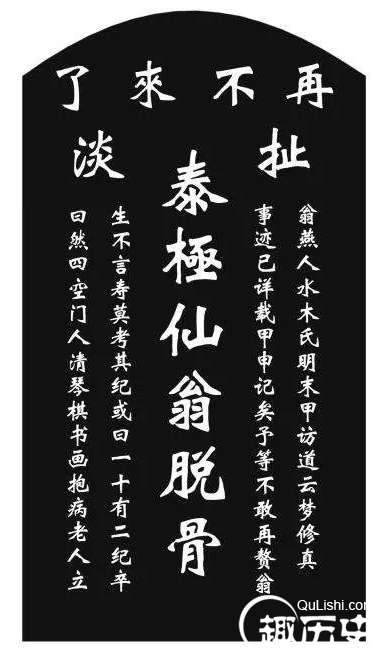 再不來了
扯淡
翁燕人水木氏明末甲访道云梦修真
事迹已详载甲申记矣予等不敢再赘翁
泰極仙翁脱骨
生不言寿莫考其纪或曰一十有二纪卒
曰然四空门人清琴棋书画抱病老人立
QuLishi.com
趣历史